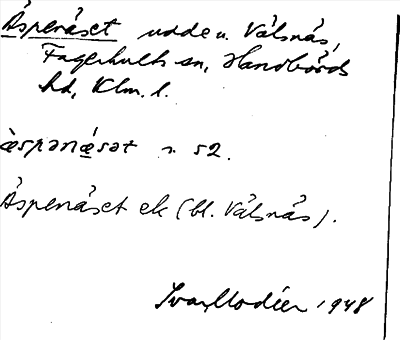 Äspenäset udde u. Välsnäs,
Fagerhults sn, Handbörds
hd, Klm. l.
æ̀spənǽsət n. s2.
Äspenäset ek (bl. Välsnäs).
Ivar Modéer 1948